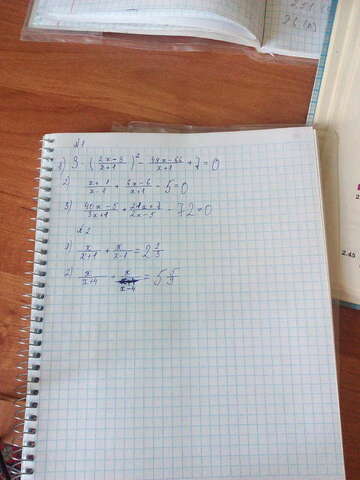 №1
1) 3 · (2x-3/x+1)² - 44x-66/x+1 + 7 = 0
2) x+1/x-1 + 6x-6/x+1 - 5 = 0
3) 40x-5/3x+1 + 21x+7/2x-5 - 72 = 0
№2
1) x/x+1 + x/x-1 = 2 2/3
2) x/x+4 + x/x-4 = 5 5/9
2.45